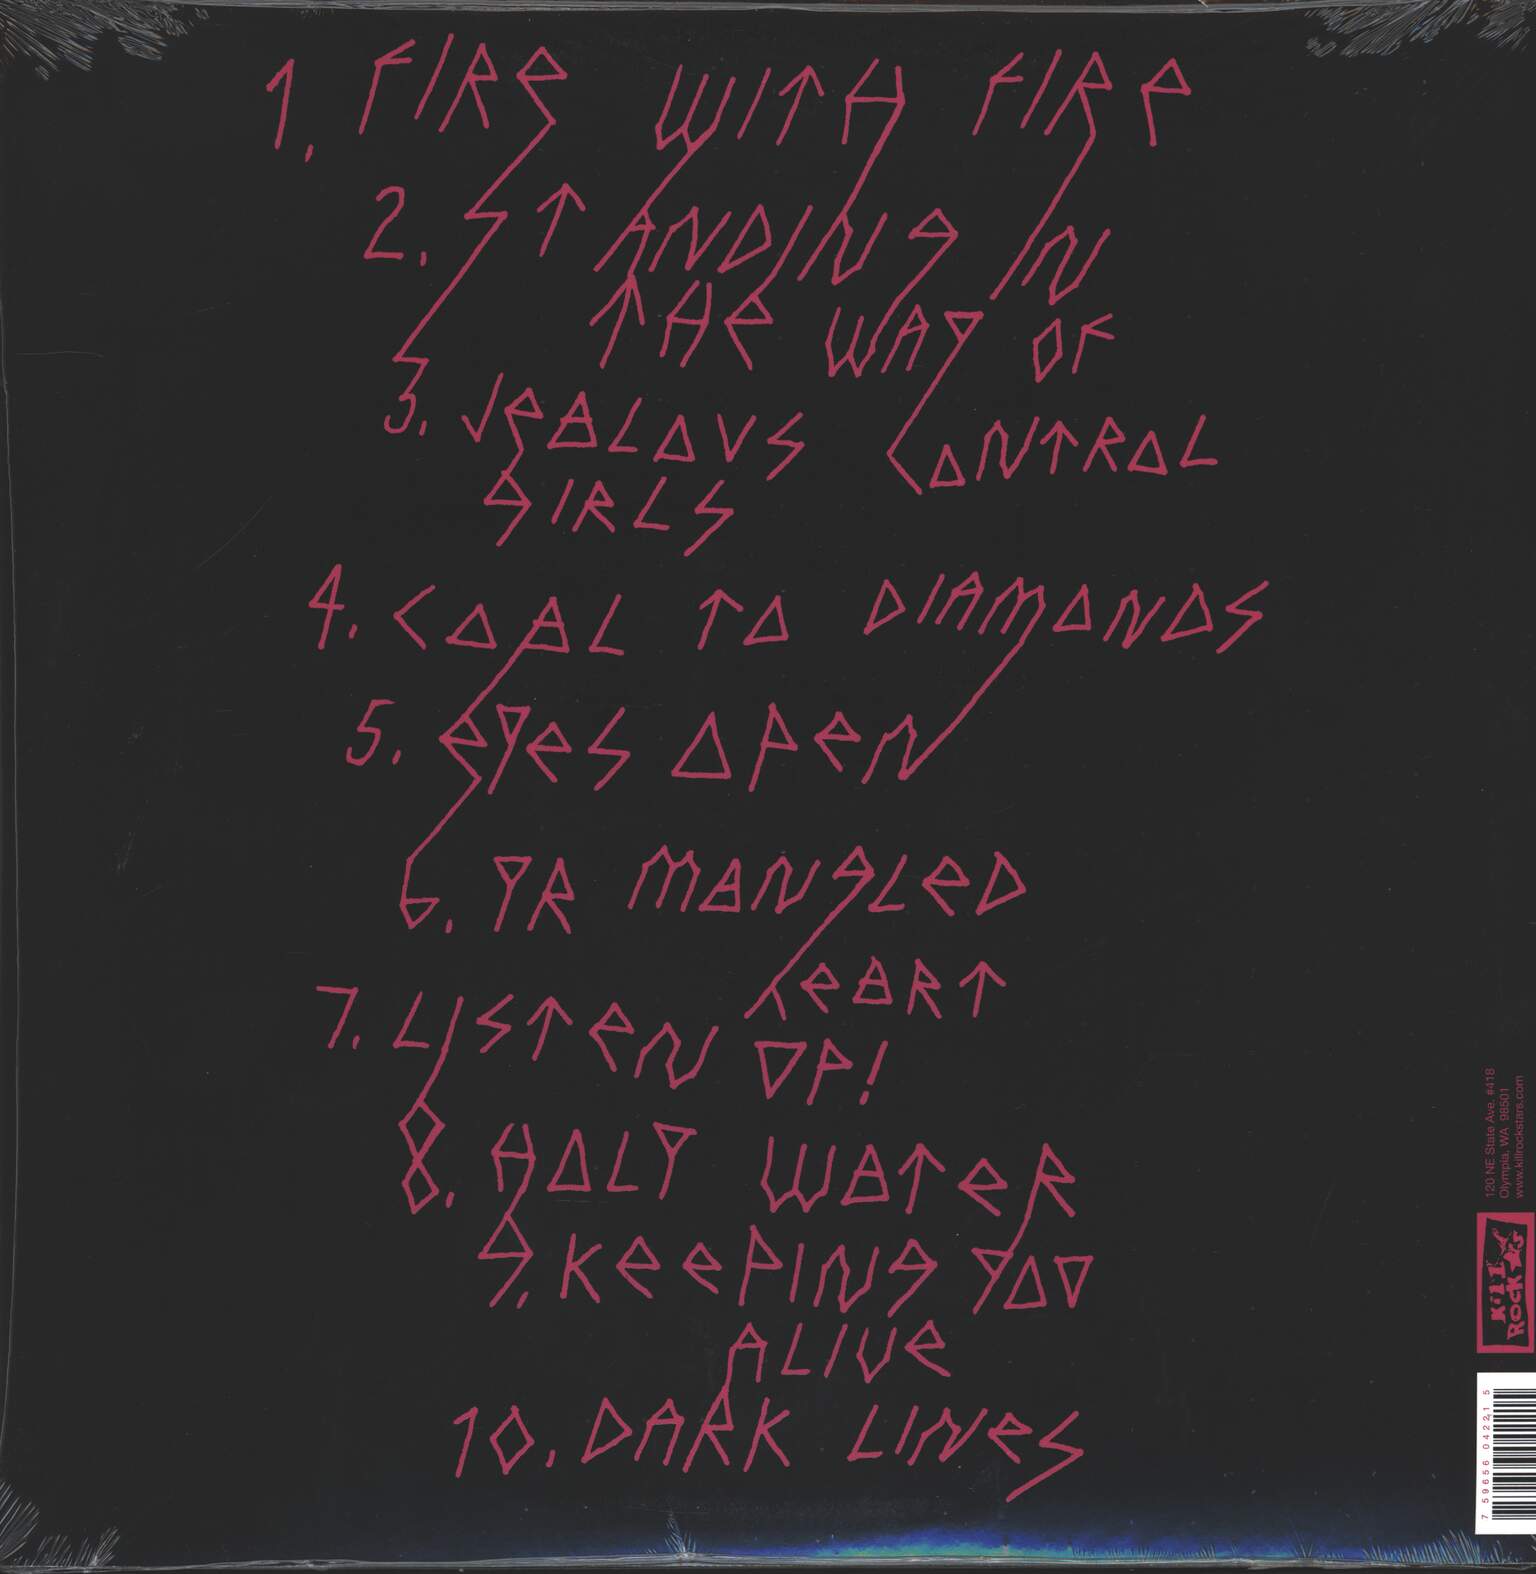 1. FIRE WITH FIRE
2. STANDING IN
THE WAY OF
CONTROL
3. JEALOUS
GIRLS
4. COAL TO DIAMONDS
5. EYES OPEN
6. YR MANGLED
HEART
7. LISTEN UP!
8. HOLY WATER
9. KEEPING YOU
ALIVE
10. DARK LINES
120 NE State Ave. #418
Olympia, WA 98501
www.killrockstars.com
KILL
ROCK★S
7 59656 04221 5